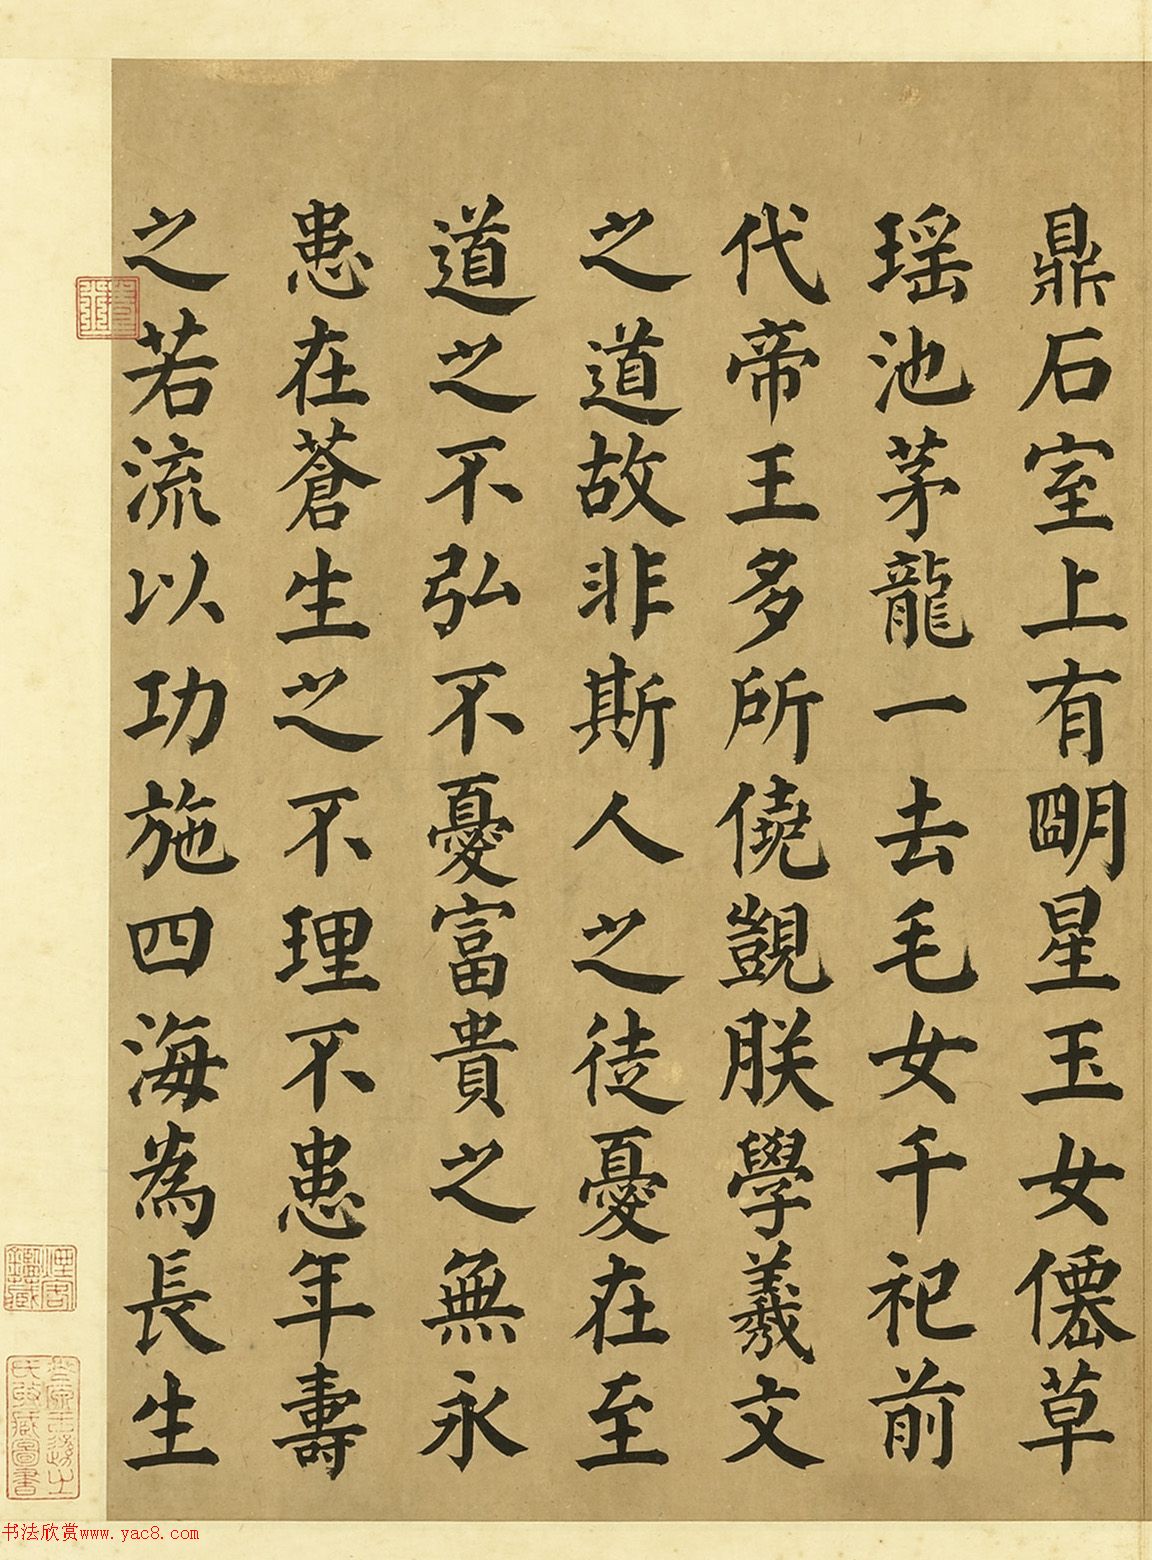 鼎石室上有明星玉女僊草
瑶池茅龍一去毛女千祀前
代帝王多所僥覬朕學羲文
之道故非斯人之徒憂在至
道之不弘不憂富貴之無永
患在蒼生之不理不患年壽
之若流以功施四海為長生
書法欣赏www.yac8.com